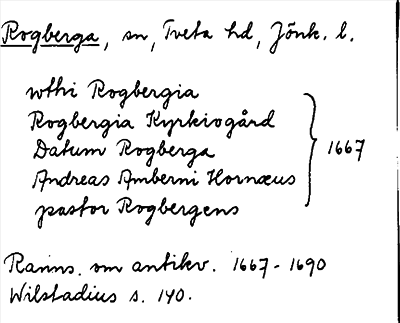 Rogberga, sn, Tveta hd, Jönk. l.
wthi Rogbergia
Rogbergia Kyrkiogård
Datum Rogberga
Andreas Amberni Hornæus
pastor Rogbergens
1667
Ranns. om antikv. 1667-1690
Wilstadius s. 140.